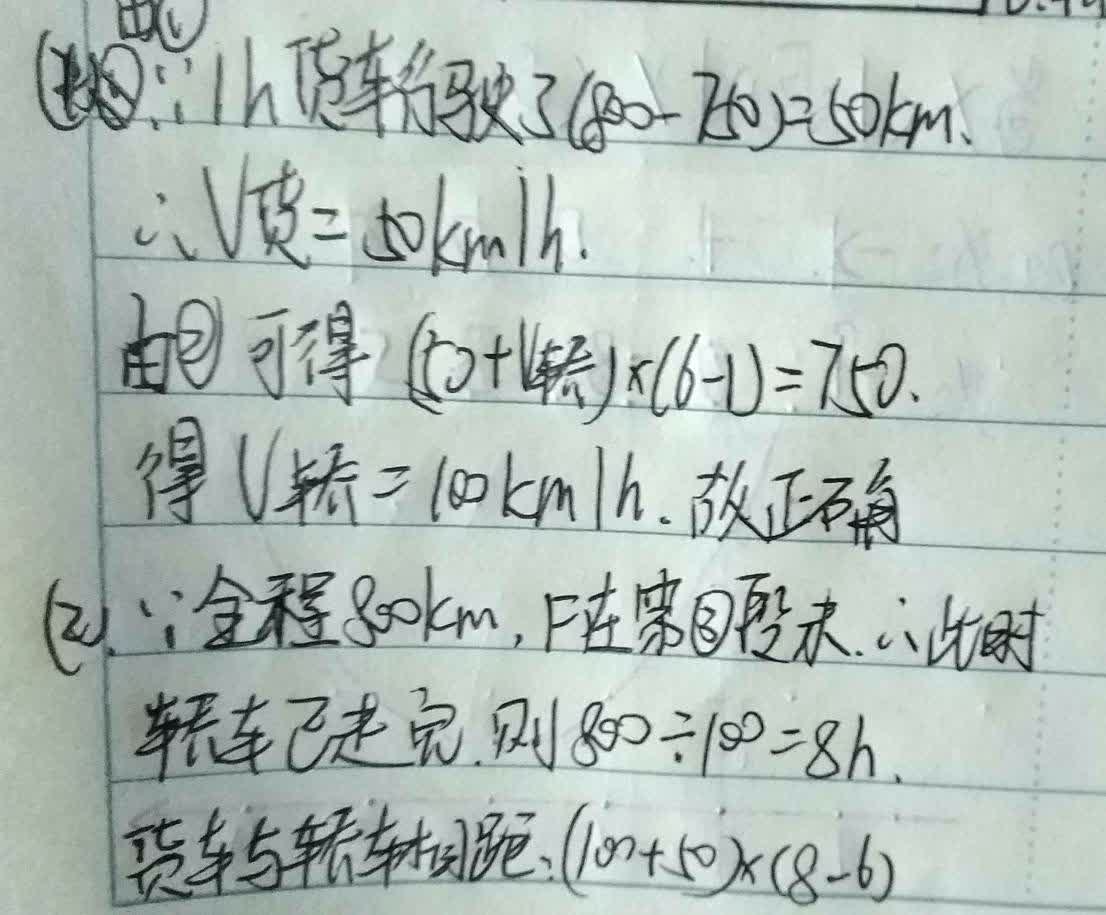 由①
∵1h货车行驶了(800-750)=50km.
∴V货=50km/h.
由② 可得 (50+V轿)×(6-1)=750.
得 V轿=100km/h. 故正确
(2). ∵全程800km, F在第③段末. ∴此时
轿车已走完. 则800÷100=8h.
货车与轿车相距: (100+50)×(8-6)